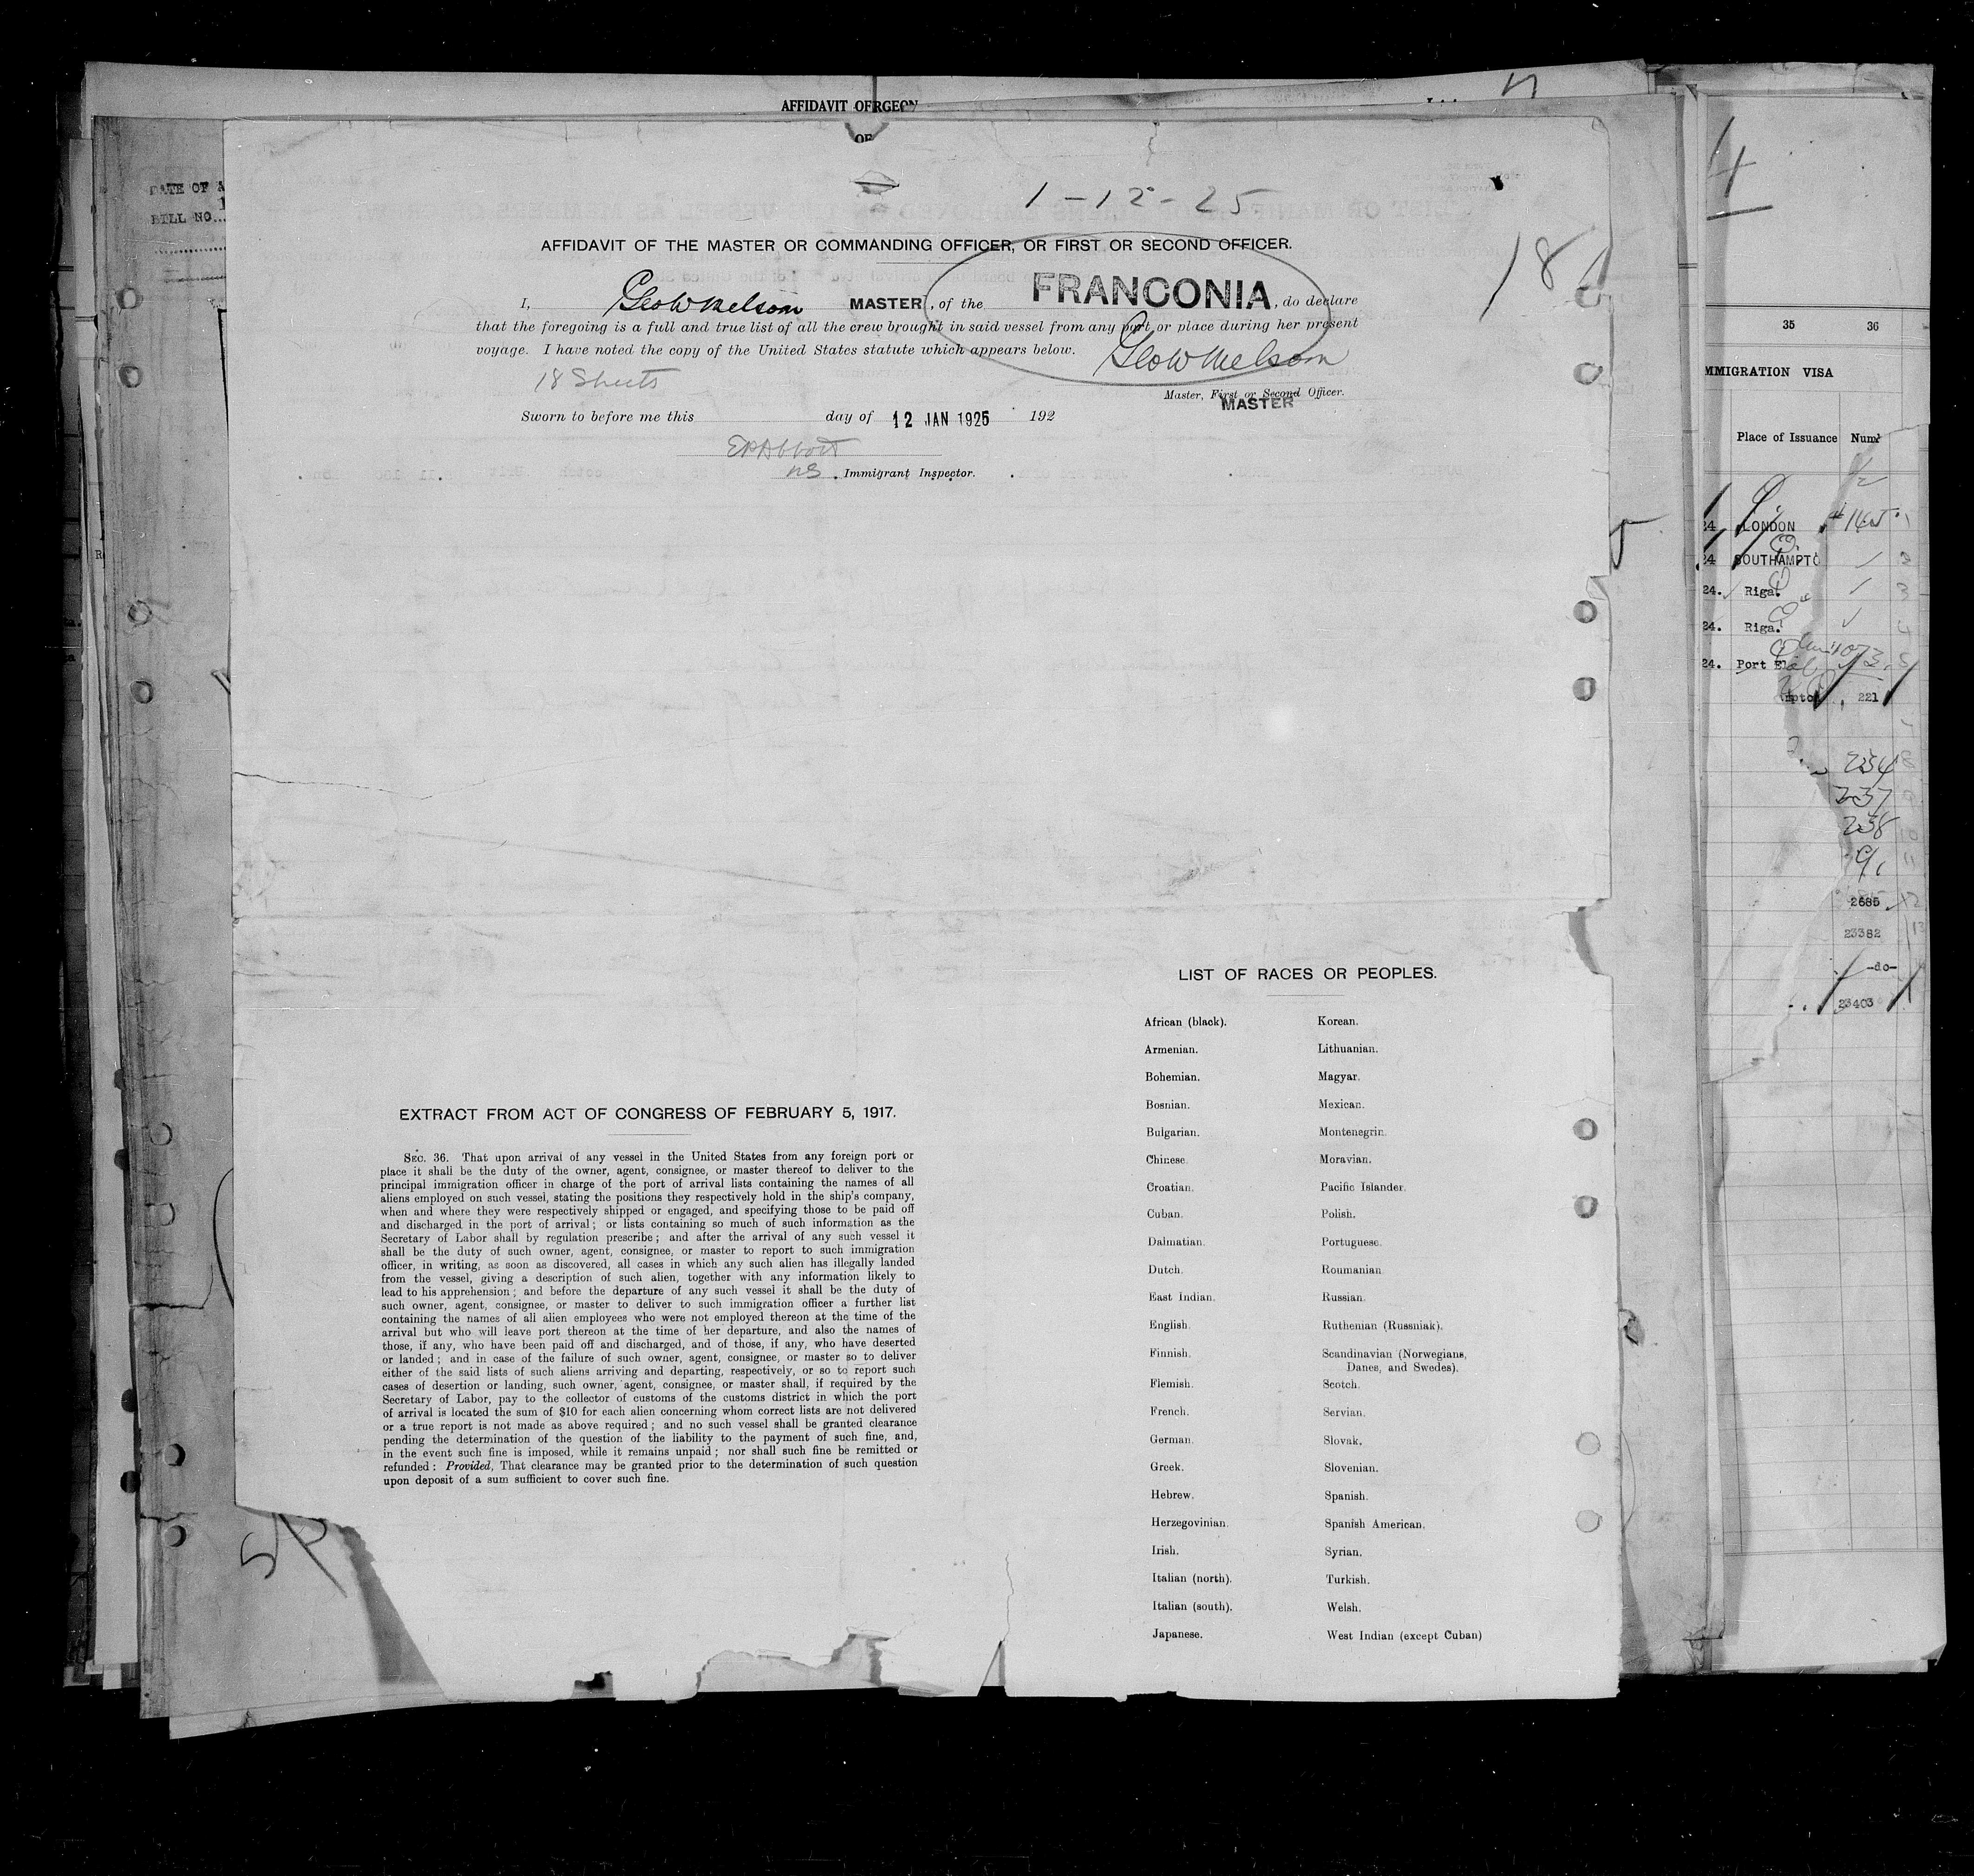 AFFIDAVIT OF RGEON
OF
DATE OF A
BILL NO.
1-12-25
AFFIDAVIT OF THE MASTER OR COMMANDING OFFICER, OR FIRST OR SECOND OFFICER.
18
I, Geo W Melsom MASTER, of the FRANCONIA, do declare
that the foregoing is a full and true list of all the crew brought in said vessel from any port or place during her present
voyage. I have noted the copy of the United States statute which appears below.
Geo W Melsom
18 Sheets
Master, First or Second Officer.
MASTER
Sworn to before me this day of 12 JAN 1925 192
E P Abbott
Immigrant Inspector.
LIST OF RACES OR PEOPLES.
African (black). Korean.
Armenian. Lithuanian.
Bohemian. Magyar.
Bosnian. Mexican.
Bulgarian. Montenegrin.
Chinese. Moravian.
Croatian. Pacific Islander.
Cuban. Polish.
Dalmatian. Portuguese.
Dutch. Roumanian.
East Indian. Russian.
English. Ruthenian (Russniak).
Finnish. Scandinavian (Norwegians,
Danes, and Swedes).
Flemish. Scotch.
French. Servian.
German. Slovak.
Greek. Slovenian.
Hebrew. Spanish.
Herzegovinian. Spanish American.
Irish. Syrian.
Italian (north). Turkish.
Italian (south). Welsh.
Japanese. West Indian (except Cuban)
EXTRACT FROM ACT OF CONGRESS OF FEBRUARY 5, 1917.
SEC. 36. That upon arrival of any vessel in the United States from any foreign port or
place it shall be the duty of the owner, agent, consignee, or master thereof to deliver to the
principal immigration officer in charge of the port of arrival lists containing the names of all
aliens employed on such vessel, stating the positions they respectively hold in the ship's company,
when and where they were respectively shipped or engaged, and specifying those to be paid off
and discharged in the port of arrival; or lists containing so much of such information as the
Secretary of Labor shall by regulation prescribe; and after the arrival of any such vessel it
shall be the duty of such owner, agent, consignee, or master to report to such immigration
officer, in writing, as soon as discovered, all cases in which any such alien has illegally landed
from the vessel, giving a description of such alien, together with any information likely to
lead to his apprehension; and before the departure of any such vessel it shall be the duty of
such owner, agent, consignee, or master to deliver to such immigration officer a further list
containing the names of all alien employees who were not employed thereon at the time of the
arrival but who will leave port thereon at the time of her departure, and also the names of
those, if any, who have been paid off and discharged, and of those, if any, who have deserted
or landed; and in case of the failure of such owner, agent, consignee, or master so to deliver
either of the said lists of such aliens arriving and departing, respectively, or so to report such
cases of desertion or landing, such owner, agent, consignee, or master shall, if required by the
Secretary of Labor, pay to the collector of customs of the customs district in which the port
of arrival is located the sum of $10 for each alien concerning whom correct lists are not delivered
or a true report is not made as above required; and no such vessel shall be granted clearance
pending the determination of the question of the liability to the payment of such fine, and,
in the event such fine is imposed, while it remains unpaid; nor shall such fine be remitted or
refunded: Provided, That clearance may be granted prior to the determination of such question
upon deposit of a sum sufficient to cover such fine.
4
35 36
MMIGRATION VISA
Place of Issuance Numb
24 LONDON
24 SOUTHAMPTO
24. Riga.
24. Riga.
24. Port El
mpton 221
234
237
238
91
2685
23382
-do-
23403